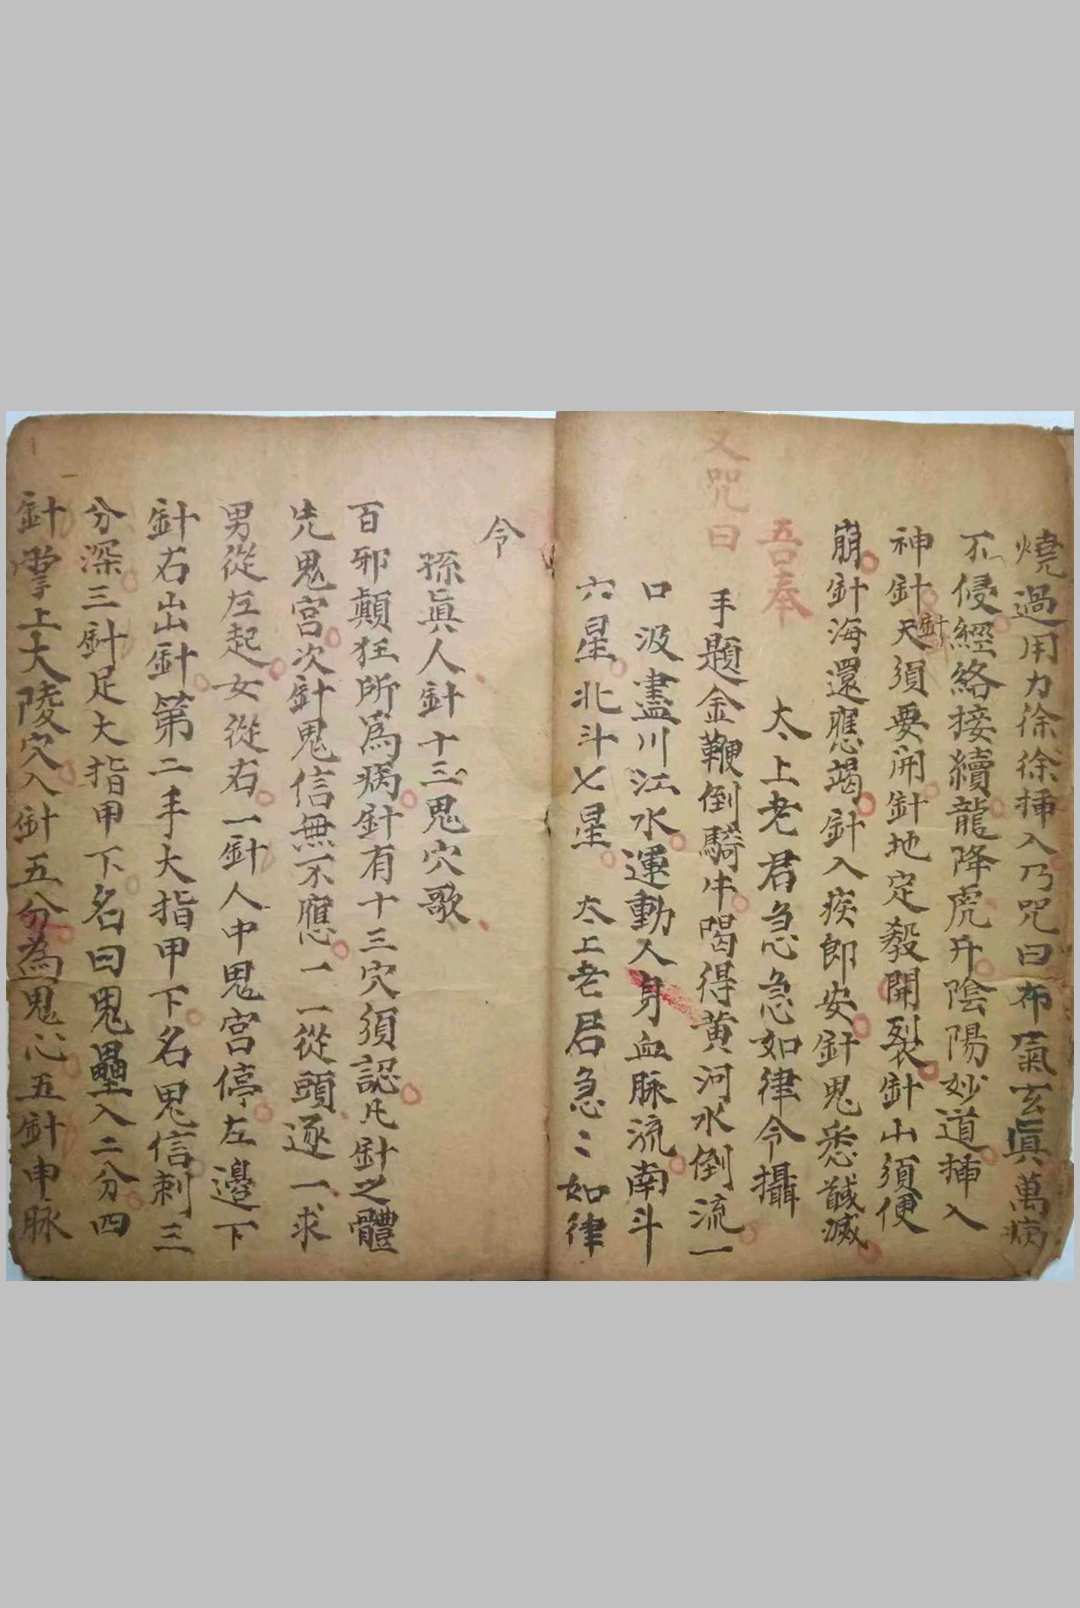 燒過用力徐徐揷入乃咒曰布氣玄眞萬病
不侵經絡接續龍降虎升陰陽妙道揷入
神針針天須要開針地定殺開裂針山須便
崩針海還應竭針入疾郎安針鬼悉馘滅
吾奉
太上老君急急如律令攝
又咒曰
手題金鞭倒騎牛喝得黃河水倒流一
口汲盡川江水運動人身血脉流南斗
六星北斗七星 太上老君急〻如律
令
孫眞人針十三鬼穴歌
百邪顛狂所爲病針有十三穴須認凡針之體
先鬼宮次針鬼信無不應一一從頭逐一求
男從左起女從右一針人中鬼宮停左邊下
針右出針第二手大指甲下名鬼信刺三
分深三針足大指甲下名曰鬼壘入二分四
針掌上大陵穴入針五分為鬼心五針申脉